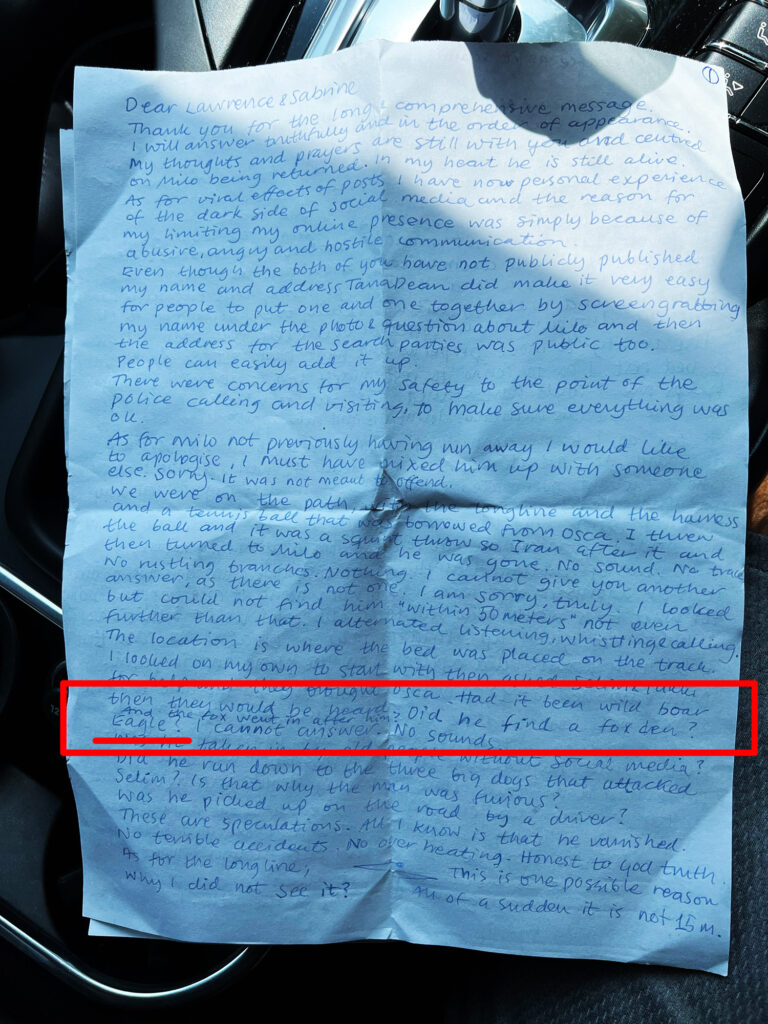 1
Dear Lawrence & Sabrine
Thank you for the long & comprehensive message.
I will answer truthfully and in the order of appearance.
My thoughts and prayers are still with you and centred
on Milo being returned. In my heart he is still alive.
As for viral effects of posts I have now personal experience
of the dark side of social media and the reason for
my limiting my online presence was simply because of
abusive, angry and hostile communication.
Even though the both of you have not publicly published
my name and address Tana Dean did make it very easy
for people to put one and one together by screengrabbing
my name under the photo & question about Milo and then
the address for the search parties was public too.
People can easily add it up.
There were concerns for my safety to the point of the
police calling and visiting, to make sure everything was
ok.
As for Milo not previously having run away I would like
to apologise, I must have mixed him up with someone
else. Sorry. It was not meant to offend.
We were on the path, with the longline and the harness
and a tennis ball that was borrowed from Osca. I threw
the ball and it was a squint throw so I ran after it and
then turned to Milo and he was gone. No sound. No trace
No rustling branches. Nothing. I cannot give you another
answer, as there is not one. I am sorry, truly. I looked
but could not find him "within 50 meters" not even
further than that. I alternated listening, whistling & calling.
The location is where the bed was placed on the track.
I looked on my own to start with then asked Selim &
for help and they brought Osca. Had it been wild boar
then they would be heard. Did he find a fox den?
And the fox went in after him?
Eagle? I cannot answer. No sounds.
Was he taken in by old people without social media?
Did he run down to the three big dogs that attacked
Selim? Is that why the man was furious?
Was he picked up on the road by a driver?
These are speculations. All I know is that he vanished.
No terrible accidents. No over heating. Honest to God truth.
As for the longline, This is one possible reason
why I did not see it? All of a sudden it is not 15 m.